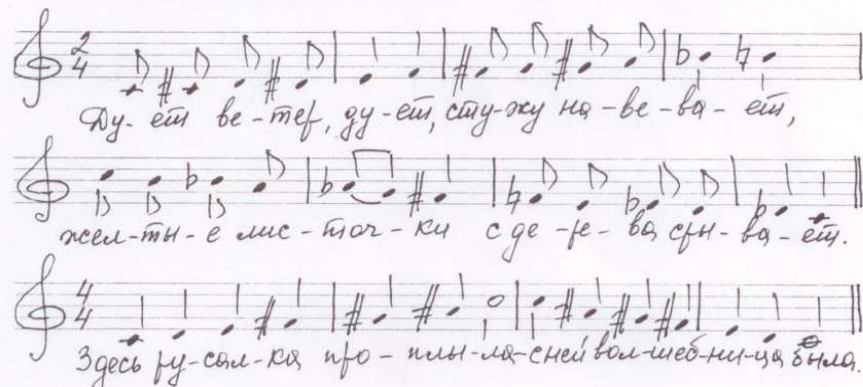 Ду-ет ве-тер, ду-ет, сту-жу на-ве-ва-ет,
жел-ты-е лис-точ-ки с де-ре-ва сры-ва-ет.
Здесь ру-сал-ка про-плы-ла-с ней вол-шеб-ни-ца была.